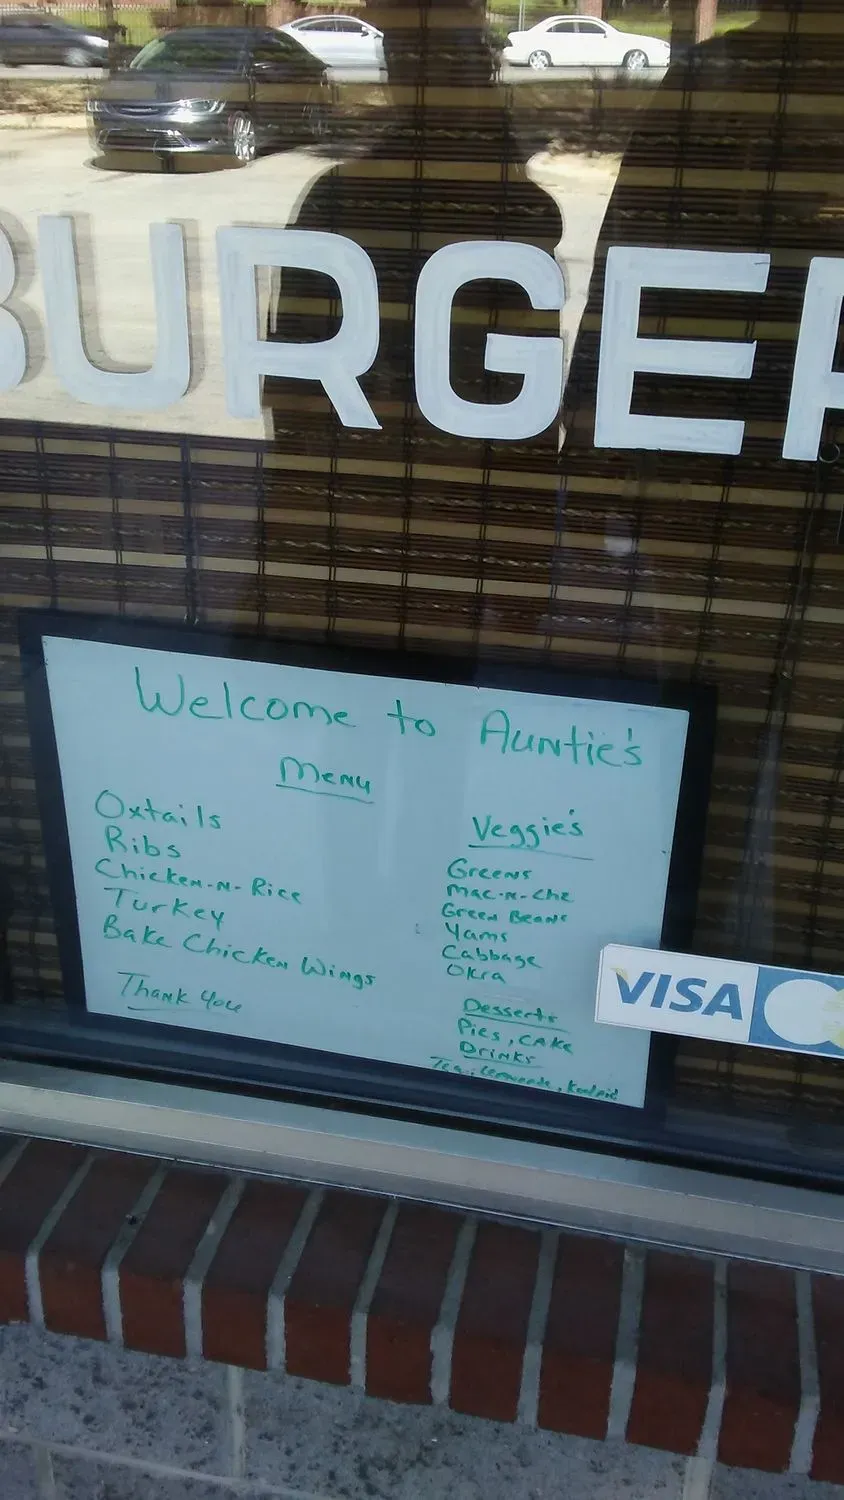 BURGER
Welcome to Auntie's
Menu
Oxtails
Ribs
Chicken-N-Rice
Turkey
Bake Chicken Wings
Thank You
Veggie's
Greens
Mac-N-Che
Green Beans
Yams
Cabbage
Okra
Desserts
Pies, Cake
Drinks
Tea, Lemonade, Koolaid
VISA